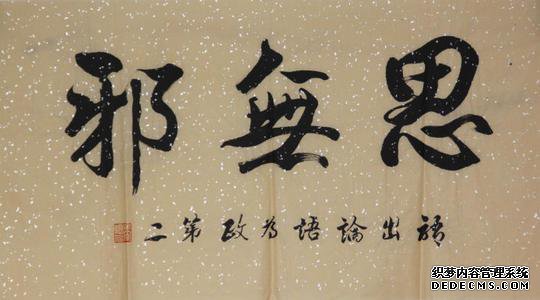 思無邪
語出論語為政第二
织梦内容管理系统
DEDECMS.COM